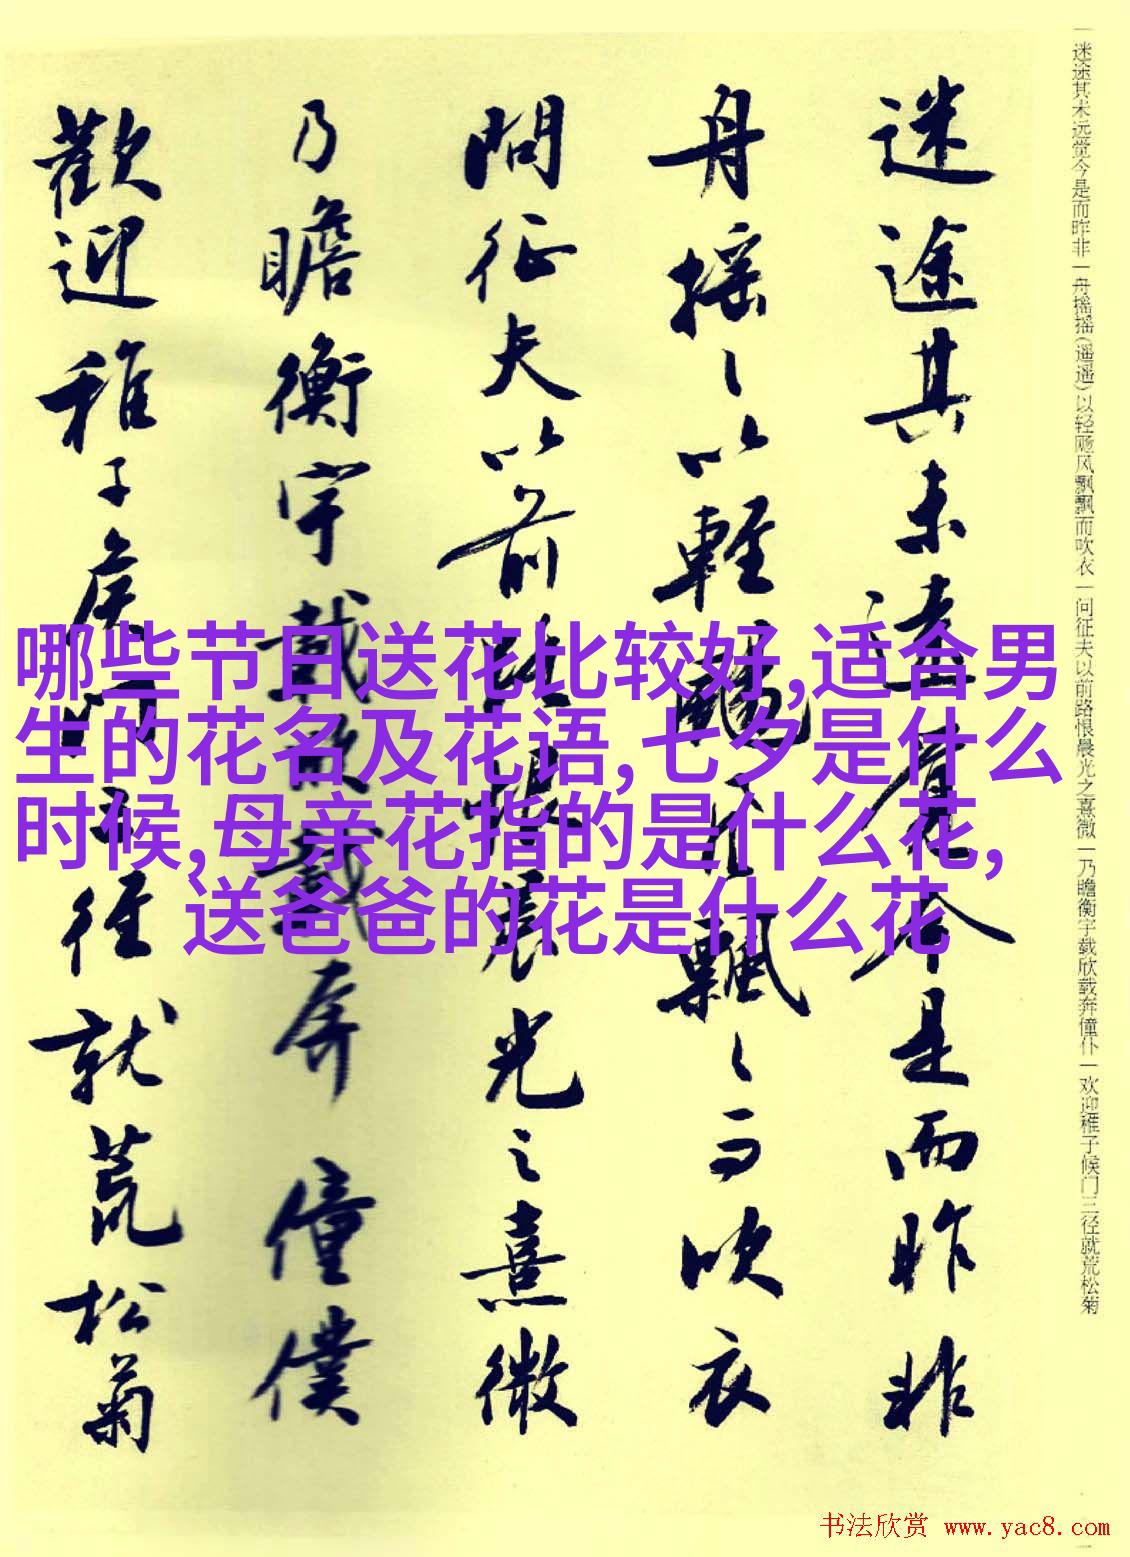 迷途其未远觉今是而昨非
舟摇摇(遥遥)以轻飏风飘飘而吹衣
问征夫以前路恨晨光之熹微
乃瞻衡宇载欣载奔僮仆
欢迎稚子候门三径就荒松菊
迷途其未遠覺今是而昨非
舟摇〻以輕颺風飄〻而吹衣
問征夫以前路恨晨光之熹微
乃瞻衡宇載欣載奔僮僕
歡迎稚子候門三徑就荒松菊
哪些节日送花比较好,适合男
生的花名及花语,七夕是什么
时候,母亲花指的是什么花,
送爸爸的花是什么花
书法欣赏 www.yac8.com